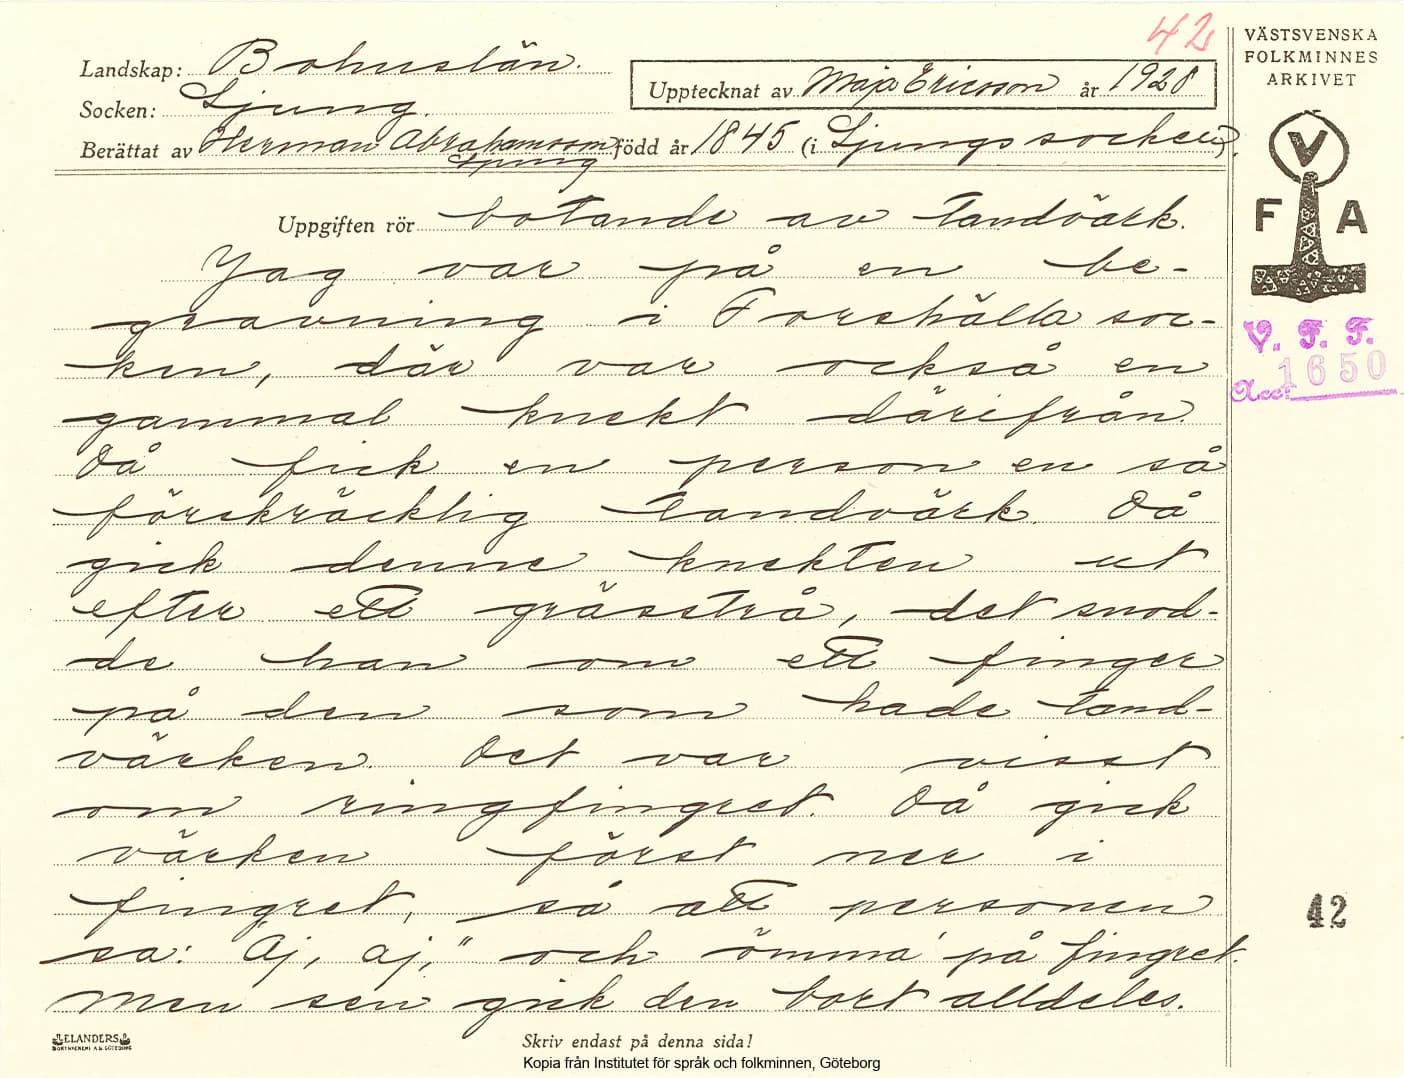 42
VÄSTSVENSKA
FOLKMINNES
ARKIVET
Landskap: Bohuslän.
Upptecknat av Maja Ericsson år 1928
Socken: Ljung.
Berättat av Herman Abrahamsson född år 1845 (i Ljungs socken).
Ljung
V
F A
Uppgiften rör botande av tandvärk.
Jag var på en be-
gravning i Forshälla soc-
ken, där var också en
gammal knekt därifrån.
Då fick en person en så
förskräcklig tandvärk. Då
gick denne knekten ut
efter ett grässtrå, det snod-
de han om ett finger
på den som hade tand-
värken. Det var visst
om ringfingret. Då gick
värken först ner i
fingret, så att personen
sa: "Aj, aj," och ömma' på fingret.
Men sen gick den bort alldeles.
V. F. F.
Acc: 1650
42
ELANDERS
BOKTRYCKERI A.B. GÖTEBORG
Skriv endast på denna sida!
Kopia från Institutet för språk och folkminnen, Göteborg